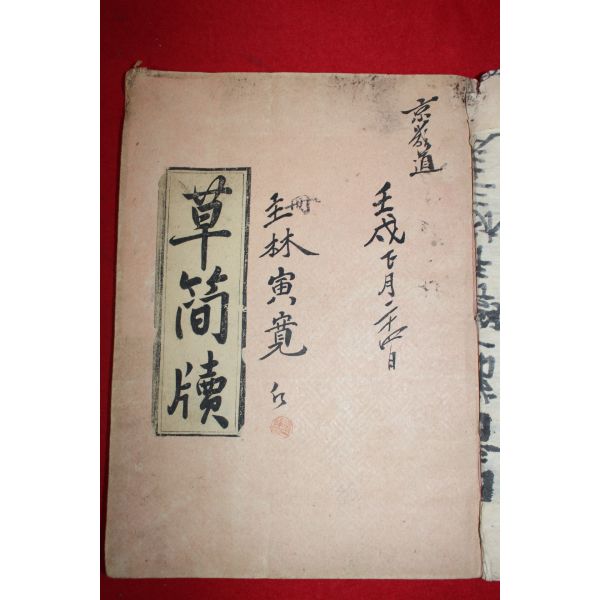 京畿道
壬戌月二十四日
冊主林寅寬
草簡牘